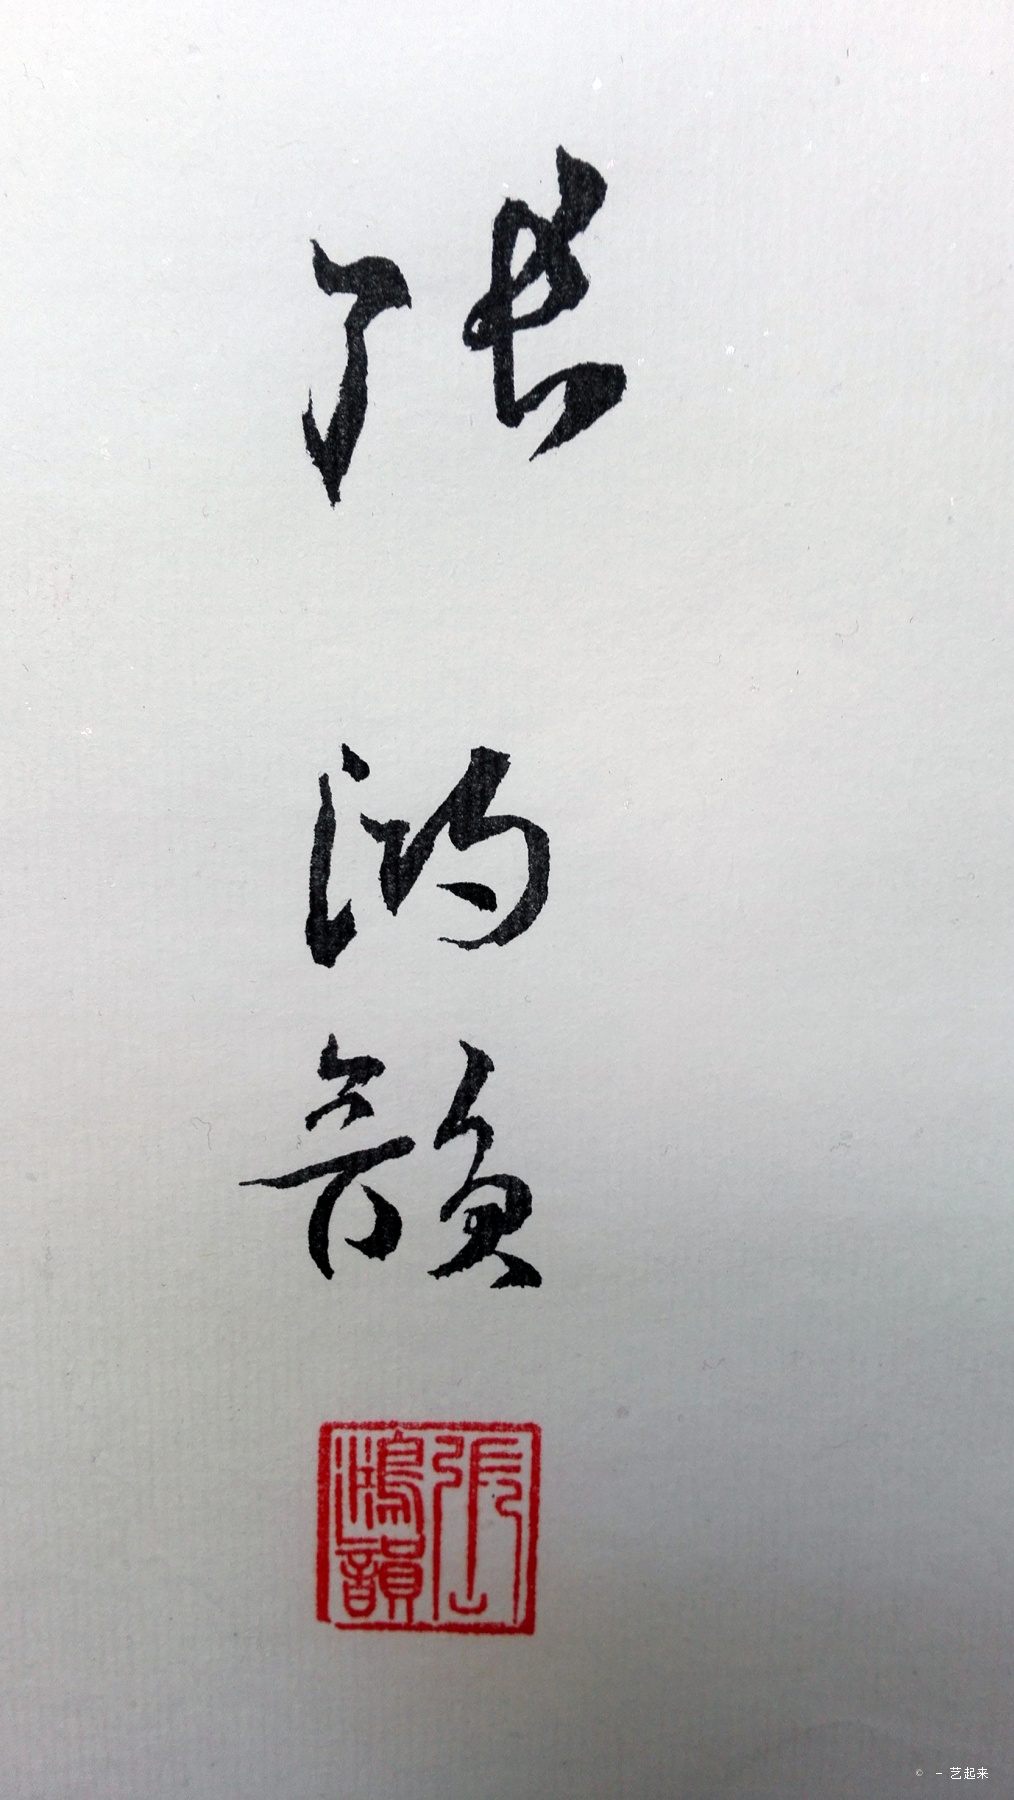 张
鸿
韻
張鴻韻
© - 艺起来